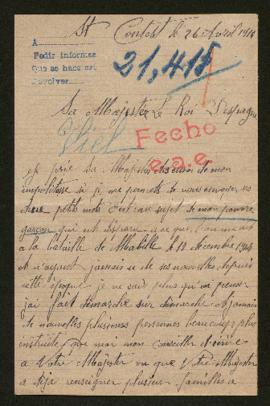 St Contest le 26 Avril 1918
A
Pedir informes
Que se hace est
devolver
21,415
Sa Majesté Le Roi D'espagne
Fecho
e.a.e.
je prie Sa Majesté de mon
impolitesse si je me permets de vous envoyer
petits mots au sujet de mon pauvre
garçon qui est disparu
a la bataille de le 10 décembre 1914
et n'ayant jamais eu de ses nouvelles depuis
cette époque je ne sais plus qu'en penser
j'ai fait démarche sur démarche et jamais
de nouvelles plusieurs personnes beaucoup plus
instruite que moi mon conseiller d'écrire
a Votre Majester vu que Votre Majester
a déja renseigner plusieur familles a